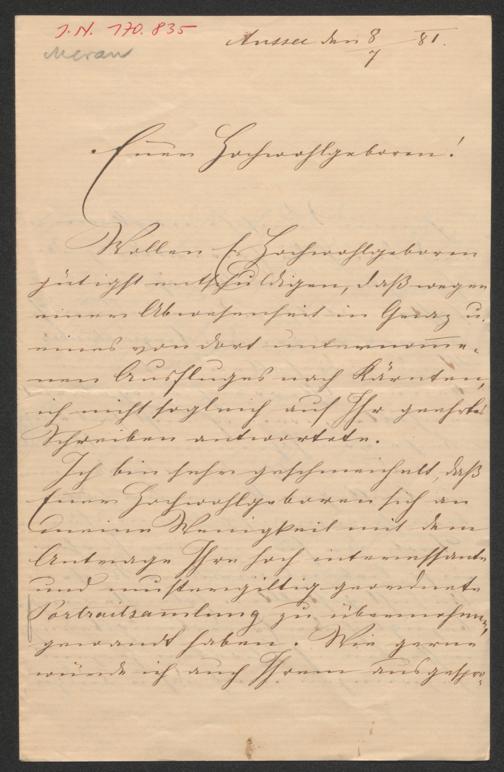 J.N. 170.835
Meran
Aussee den 8/7 81.
Euer Hochwohlgeboren!
Wollen E. Hochwohlgeboren
gütigst entschuldigen, daß wegen
einer Abwesenheit in Graz u.
eines von dort unternomme-
nen Ausfluges nach Kärnten,
ich nicht sogleich auf Ihr geehrtes
Schreiben antwortete.
Ich bin sehr geschmeichelt, daß
Euer Hochwohlgeboren sich an
meine Wenigkeit mit dem
Antrage Ihre hoch interessante
und mustergiltig geordnete
Portraitsamlung zu übernehmen,
gewandt haben. Wie gerne
würde ich auch Ihrem ausgespro-